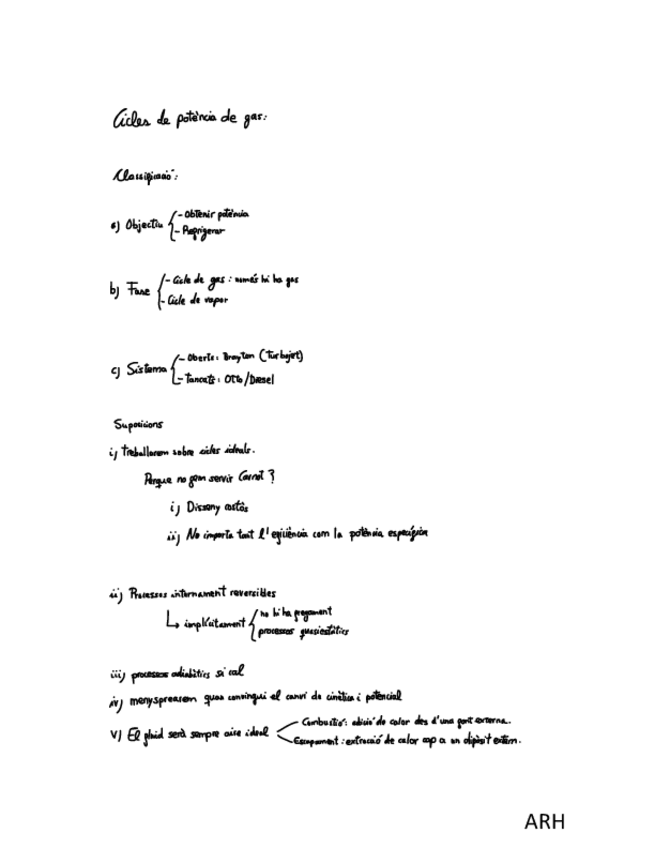 Cicles de potència de gas:
Classificació:
a) Objectiu
- Obtenir potència
- Refrigerar
b) Fase
- Cicle de gas: només hi ha gas
- Cicle de vapor
c) Sistema
- Oberts: Brayton (Turbojet)
- Tancats: Otto/Diesel
Suposicions
i) Treballarem sobre cicles ideals.
Perque no fem servir Carnot?
i) Disseny costós
ii) No importa tant l'eficiència com la potència específica
ii) Processos internament reversibles
↳ implícitament
no hi ha fregament
processos quasiestàtics
iii) processos adiabàtics si cal
iv) menysprearem quan convingui el canvi de cinètica i potencial
v) El fluid serà sempre aire ideal
Combustió: adició de calor des d'una font externa.
Escapament: extracció de calor cap a un dipòsit extern.
ARH